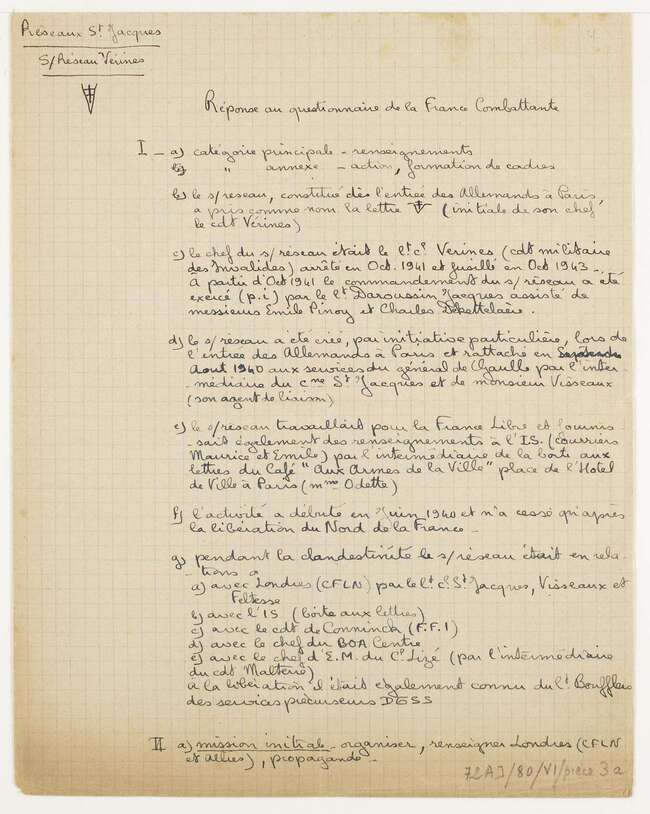 Réseaux St Jacques
S/Réseau Vérines
Réponse au questionnaire de la France Combattante
I - a) catégorie principale - renseignements
b) " annexe - action, formation de cadres
b) le s/reseau, constitué dès l'entrée des Allemands à Paris,
a pris comme nom la lettre V (initiale de son chef
le cdt Vérines)
c) le chef du s/réseau était le lt cl Verines (cdt militaire
des Invalides) arrêté en Oct. 1941 et fusillé en Oct 1943 -
A partir d'Oct 1941 le commandement du s/réseau a été
exercé (p.i) par le lt Daroussin Jacques assisté de
messieurs Emile Pinoy et Charles
d) le s/réseau a été créé, par initiative particulière, lors de
l'entrée des Allemands à Paris et rattaché en
Aout 1940 aux services du général de Gaulle par l'inter-
médiaire du cne St Jacques et de monsieur Visseaux
(son agent de liaison)
e) le s/réseau travaillait pour la France Libre et fournis-
sait également des renseignements à l'I.S. (courriers
Maurice et Emile) par l'intermédiaire de la boite aux
lettres du Café "Aux Armes de la Ville" place de l'Hotel
de Ville à Paris (mme Odette)
f) l'activité a débuté en Juin 1940 et n'a cessé qu'après
la libération du Nord de la France -
g) pendant la clandestinité le s/réseau était en rela-
tions a
a) avec Londres (CFLN) par le lt cl St Jacques, Visseaux et
Feltesse
b) avec l'IS (boite aux lettres)
c) avec le cdt de Conninck (F.F.I)
d) avec le chef du BOA Centre
e) avec le chef d'E.M. du Cl Lizé (par l'intermédiaire
du cdt Malterie)
à la libération il était également connu du lt Boufflers
des services précurseurs DGSS
II a) mission initiale - organiser, renseigner Londres (CFLN
et Allies), propagande -
72AJ/80/VI/pièce 3a